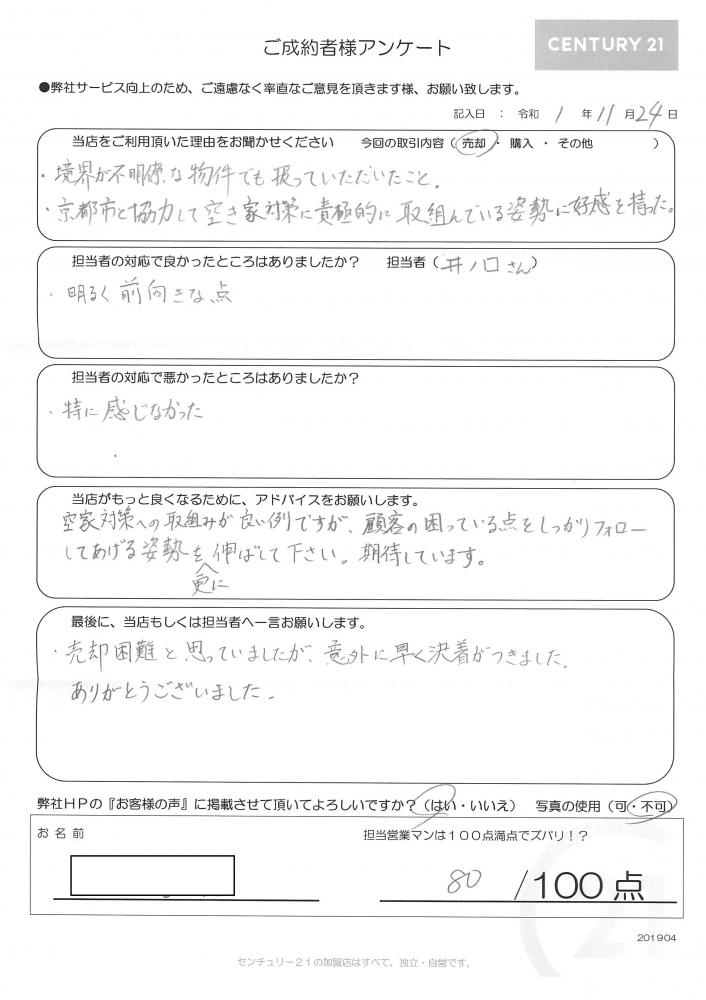 ご成約者様アンケート
CENTURY 21
●弊社サービス向上のため、ご遠慮なく率直なご意見を頂きます様、お願い致します。
記入日 : 令和 1 年 11 月 24 日
当店をご利用頂いた理由をお聞かせください 今回の取引内容（ 売却 ・ 購入 ・ その他 ）
・境界が不明僚な物件でも扱っていただいたこと。
・京都市と協力して空き家対策に責極的に取組んでいる姿勢に好感を持った。
担当者の対応で良かったところはありましたか？ 担当者（井ノ口さん）
・明るく前向きな点
担当者の対応で悪かったところはありましたか？
・特に感じなかった
当店がもっと良くなるために、アドバイスをお願いします。
空家対策への取組みが良い例ですが、顧客の困っている点をしっかりフォロー
してあげる姿勢を更に伸ばして下さい。期待しています。
最後に、当店もしくは担当者へ一言お願いします。
・売却困難と思っていましたが、意外に早く決着がつきました。
ありがとうございました。
弊社ＨＰの『お客様の声』に掲載させて頂いてよろしいですか？（はい・いいえ） 写真の使用（可・不可）
お名前
担当営業マンは１００点満点でズバリ！？
80 /100点
21
201904
センチュリー２１の加盟店はすべて、独立・自営です。